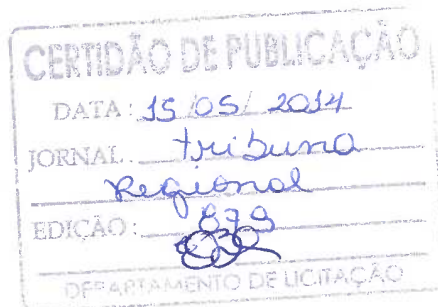 CERTIDÃO DE PUBLICAÇÃO
DATA: 15/05/2014
JORNAL: tribuna
Regional
EDIÇÃO: 879
DEPARTAMENTO DE LICITAÇÃO